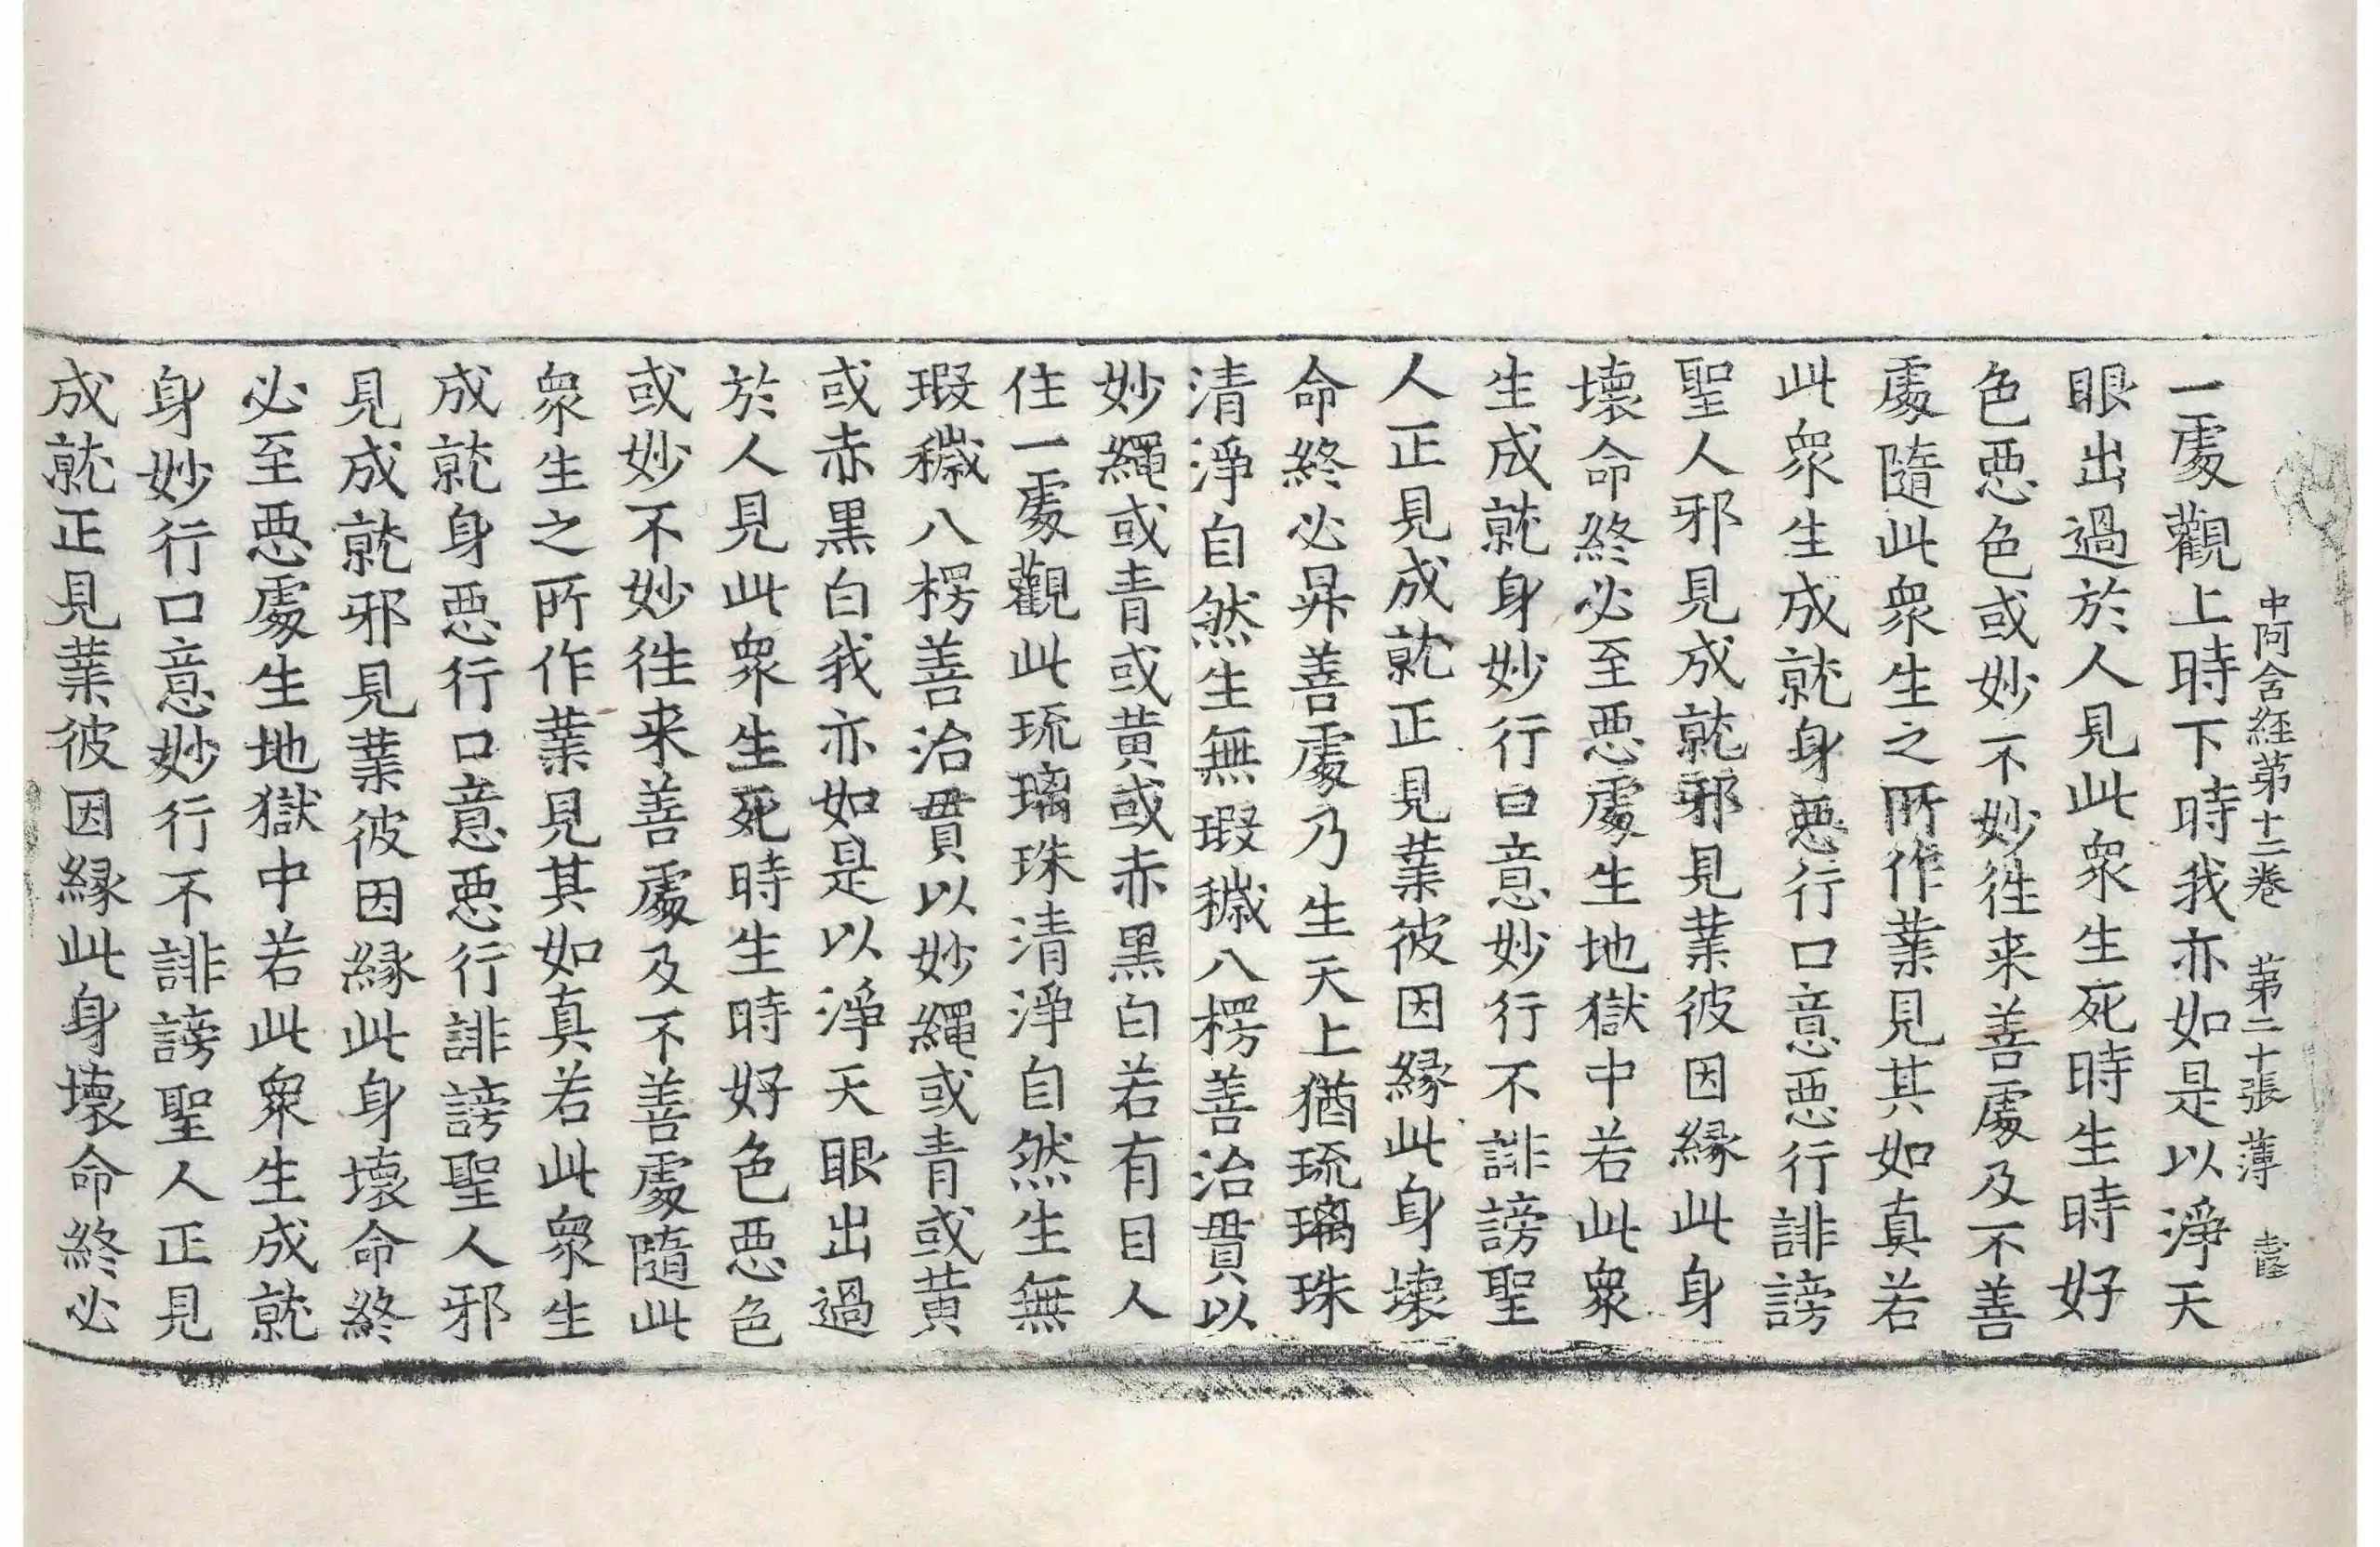 中阿含経苐十二巻　苐二十張　薄
一處觀上時下時我亦如是以淨天
眼出過於人見此衆生死時生時好
色惡色或妙不妙徃来善處及不善
處隨此衆生之所作業見其如真若
此衆生成就身惡行口意惡行誹謗
聖人邪見成就邪見業彼因縁此身
壞命終必至惡處生地獄中若此衆
生成就身妙行口意妙行不誹謗聖
人正見成就正見業彼因縁此身壞
命終必昇善處乃生天上猶琉璃珠
清淨自然生無瑕穢八楞善治貫以
妙繩或青或黄或赤黒白若有目人
住一處觀此琉璃珠清淨自然生無
瑕穢八楞善治貫以妙繩或青或黄
或赤黒白我亦如是以淨天眼出過
於人見此衆生死時生時好色惡色
或妙不妙徃来善處及不善處隨此
衆生之所作業見其如真若此衆生
成就身惡行口意惡行誹謗聖人邪
見成就邪見業彼因縁此身壞命終
必至惡處生地獄中若此衆生成就
身妙行口意妙行不誹謗聖人正見
成就正見業彼因縁此身壞命終必